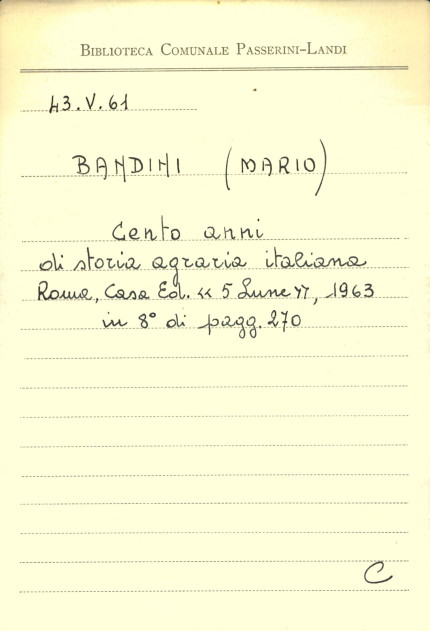 BIBLIOTECA COMUNALE PASSERINI-LANDI
43.V.61
BANDINI (MARIO)
Cento anni
di storia agraria italiana
Roma, Casa Ed. « 5 Lune », 1963
in 8° di pagg. 270
C